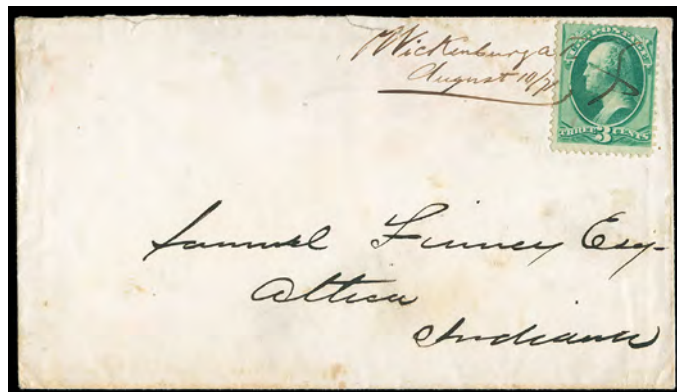 Wickenburg a T
August 10/71
U.S. POSTAGE
THREE 3 CENTS
Samuel Finney Esq-
Attica
Indiana